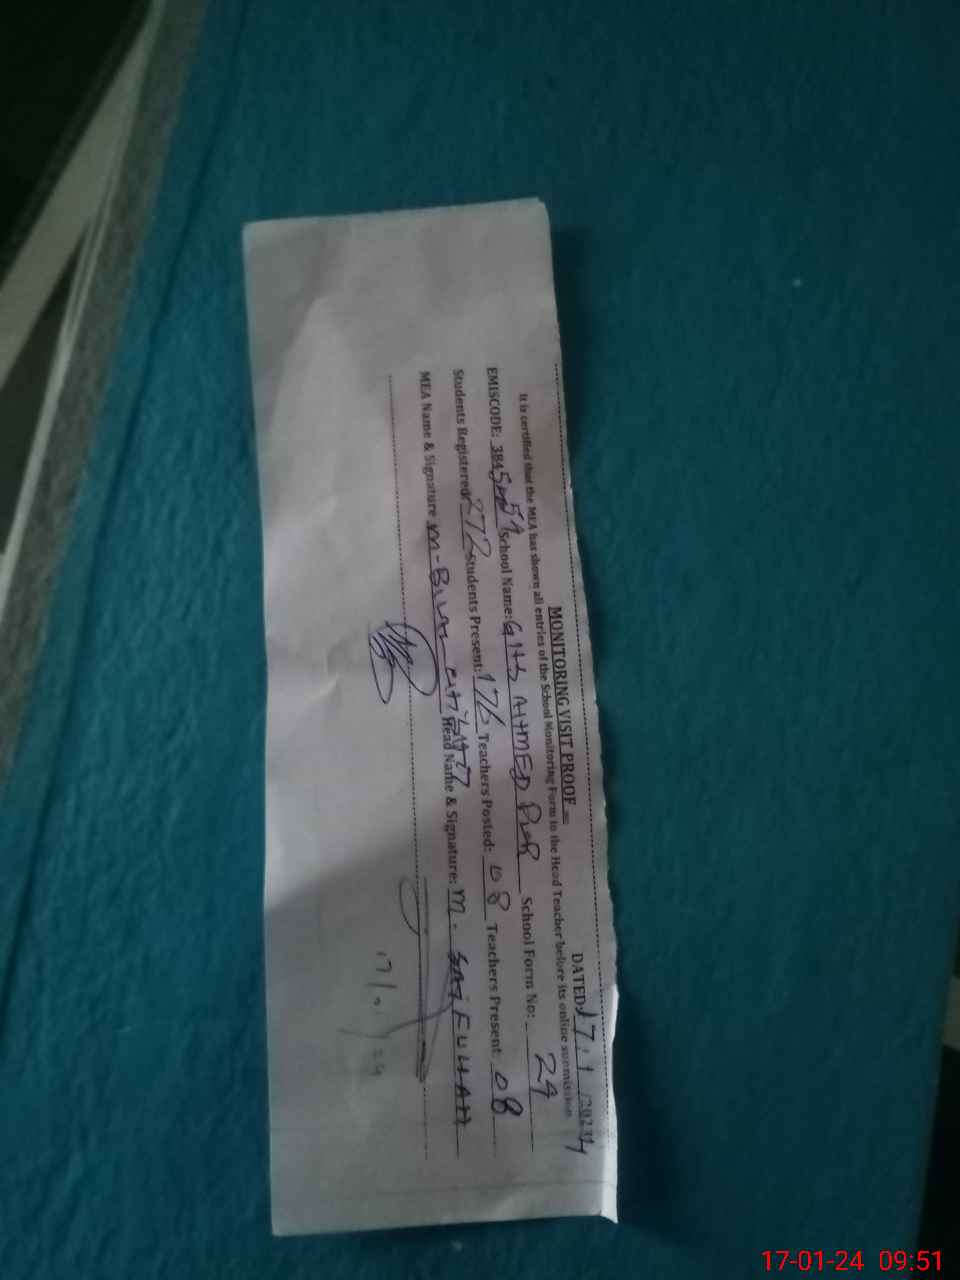 MONITORING VISIT PROOF
DATED: 17/1/2024
It is certified that the MEA has shown all entries of the School Monitoring Form to the Head Teacher before its online submission.
EMISCODE: 3845 School Name: GHS AHMED School Form No: 29
Students Registered: 272 Students Present: 176 Teachers Posted: 08 Teachers Present: 08
MEA Name & Signature: M- Head Name & Signature: M.
17/01/24
17-01-24 09:51